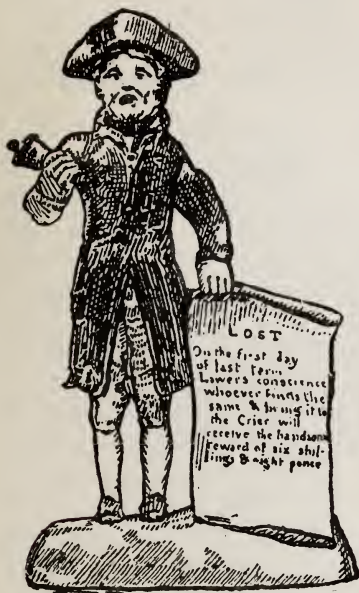 LOST
On the first day
of last term
Lawers conscience
whoever finds the
same & bring it to
the Crier will
receive the handsom
reward of six shil-
lings & eight pence